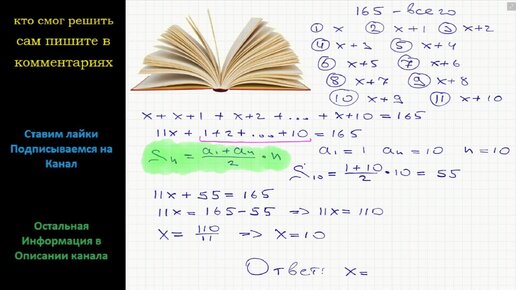 кто смог решить
сам пишите в
комментариях
Ставим лайки
Подписываемся на
Канал
Остальная
Информация в
Описании канала
165 - всего
① x ② x + 1 ③ x + 2
④ x + 3 ⑤ x + 4
⑥ x + 5 ⑦ x + 6
⑧ x + 7 ⑨ x + 8
⑩ x + 9 ⑪ x + 10
x + x + 1 + x + 2 + ... + x + 10 = 165
11x + 1 + 2 + ... + 10 = 165
Sₙ = (a₁ + aₙ)/2 · n a₁ = 1 aₙ = 10 n = 10
S₁₀ = (1 + 10)/2 · 10 = 55
11x + 55 = 165
11x = 165 - 55 => 11x = 110
x = 110/11 => x = 10
Ответ: x =